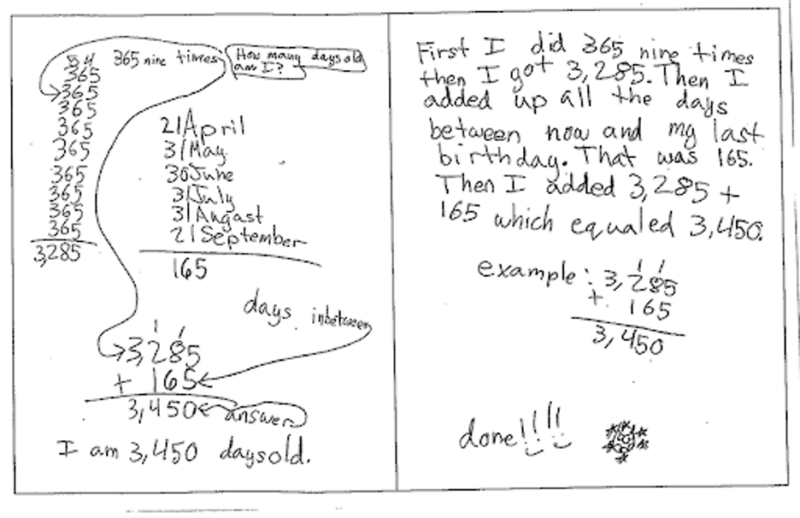 3 4
365 nine times
How many days old
am I?
365
365
365
365
365
365
365
365
365
3,285
21 April
31 May
30 June
31 July
31 Angast
21 September
165
days inbetween
1 1
3,285
+ 165
3,450 answer
I am 3,450 days old.
First I did 365 nine times
then I got 3,285. Then I
added up all the days
between now and my last
birthday. That was 165.
Then I added 3,285 +
165 which equaled 3,450.
1 1
example: 3,285
+ 165
3,450
done!!!!